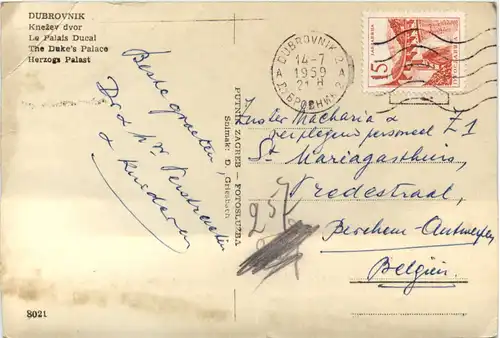 DUBROVNIK
Knežev dvor
Le Palais Ducal
The Duke's Palace
Herzogs Palast
Beste groeten,
Dr & Mw
& kinderen
PUTNIK ZAGREB - FOTOSLUŽBA
Snimak: D. Griesbach
DUBROVNIK 2
14-7
1959
21 H
ДУБРОВНИК 2
15
Zuster Macharia &
verplegend personeel Z1
St Mariagasthuis,
Vredestraat,
257
Berchem-Antwerpen
Belgien.
8021